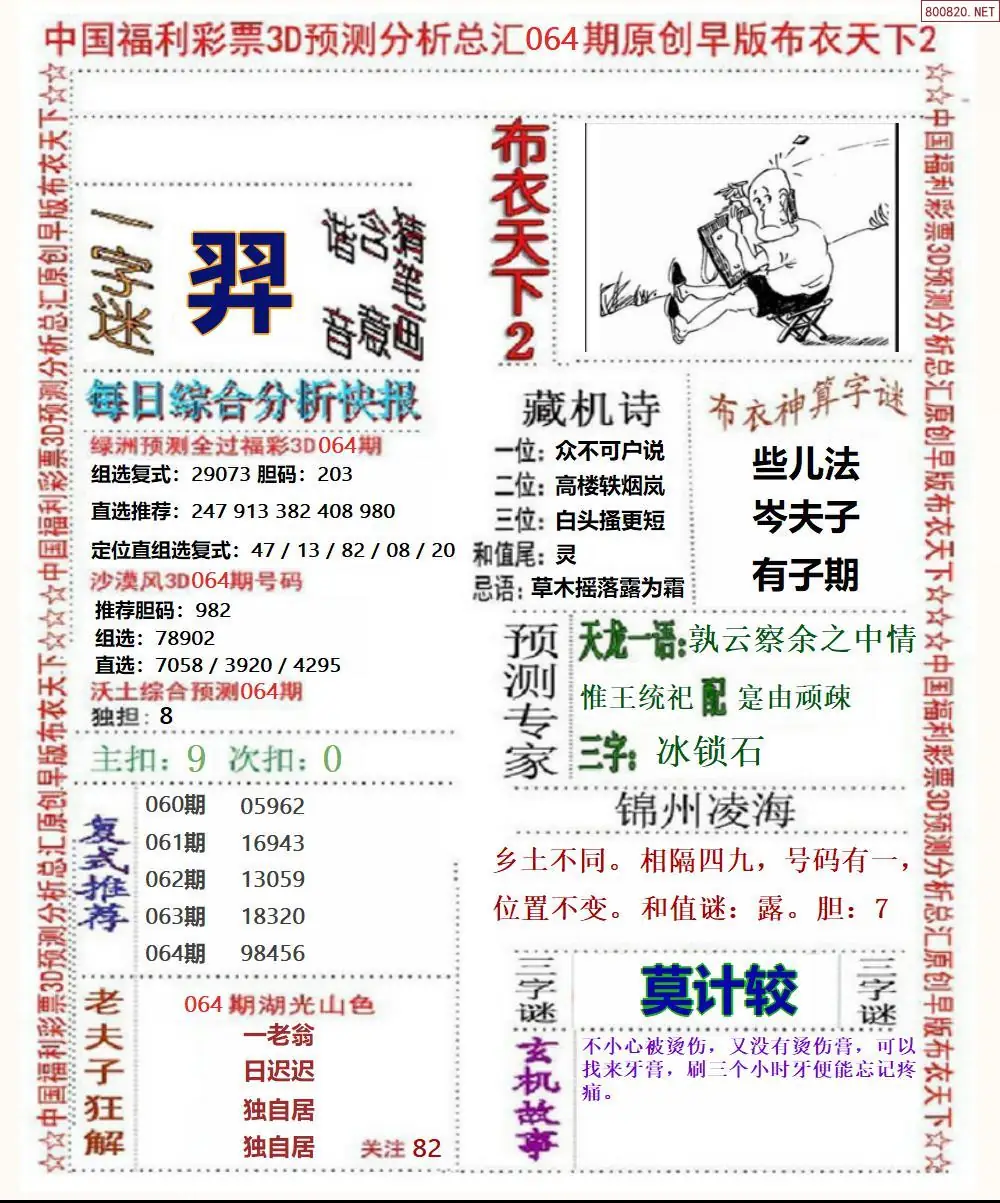 800820.NET
中国福利彩票3D预测分析总汇064期原创早版布衣天下2
☆☆中国福利彩票3D预测分析总汇原创早版布衣天下☆☆☆中国福利彩票3D预测分析总汇原创早版布衣天下☆☆
一字迷
羿
猜笔画
含意
谐音
布衣天下2
每日综合分析快报
绿洲预测全过福彩3D064期
组选复式：29073 胆码：203
直选推荐：247 913 382 408 980
定位直组选复式：47 / 13 / 82 / 08 / 20
沙漠风3D064期号码
推荐胆码：982
组选：78902
直选：7058 / 3920 / 4295
沃土综合预测064期
独担：8
主扣：9 次扣：0
复式推荐
060期 05962
061期 16943
062期 13059
063期 18320
064期 98456
老夫子狂解
064期湖光山色
一老翁
日迟迟
独自居
独自居
关注 82
藏机诗
一位：众不可户说
二位：高楼轶烟岚
三位：白头搔更短
和值尾：灵
忌语：草木摇落露为霜
布衣神算字谜
些儿法
岑夫子
有子期
预测专家
天龙一语:孰云察余之中情
惟王统祀 配 寔由顽疎
三字：冰锁石
锦州凌海
乡土不同。相隔四九，号码有一，
位置不变。和值谜：露。胆：7
三字谜
莫计较
三字谜
玄机故事
不小心被烫伤，又没有烫伤膏，可以
找来牙膏，刷三个小时牙便能忘记疼
痛。
☆☆中国福利彩票3D预测分析总汇原创早版布衣天下☆☆☆中国福利彩票3D预测分析总汇原创早版布衣天下☆☆